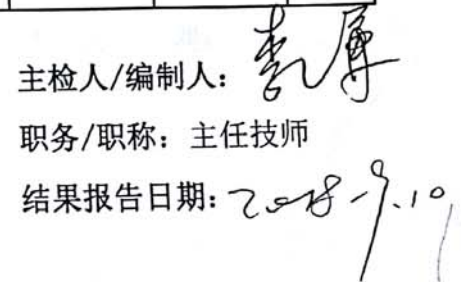 主检人/编制人：
职务/职称：主任技师
结果报告日期：2018-9.10